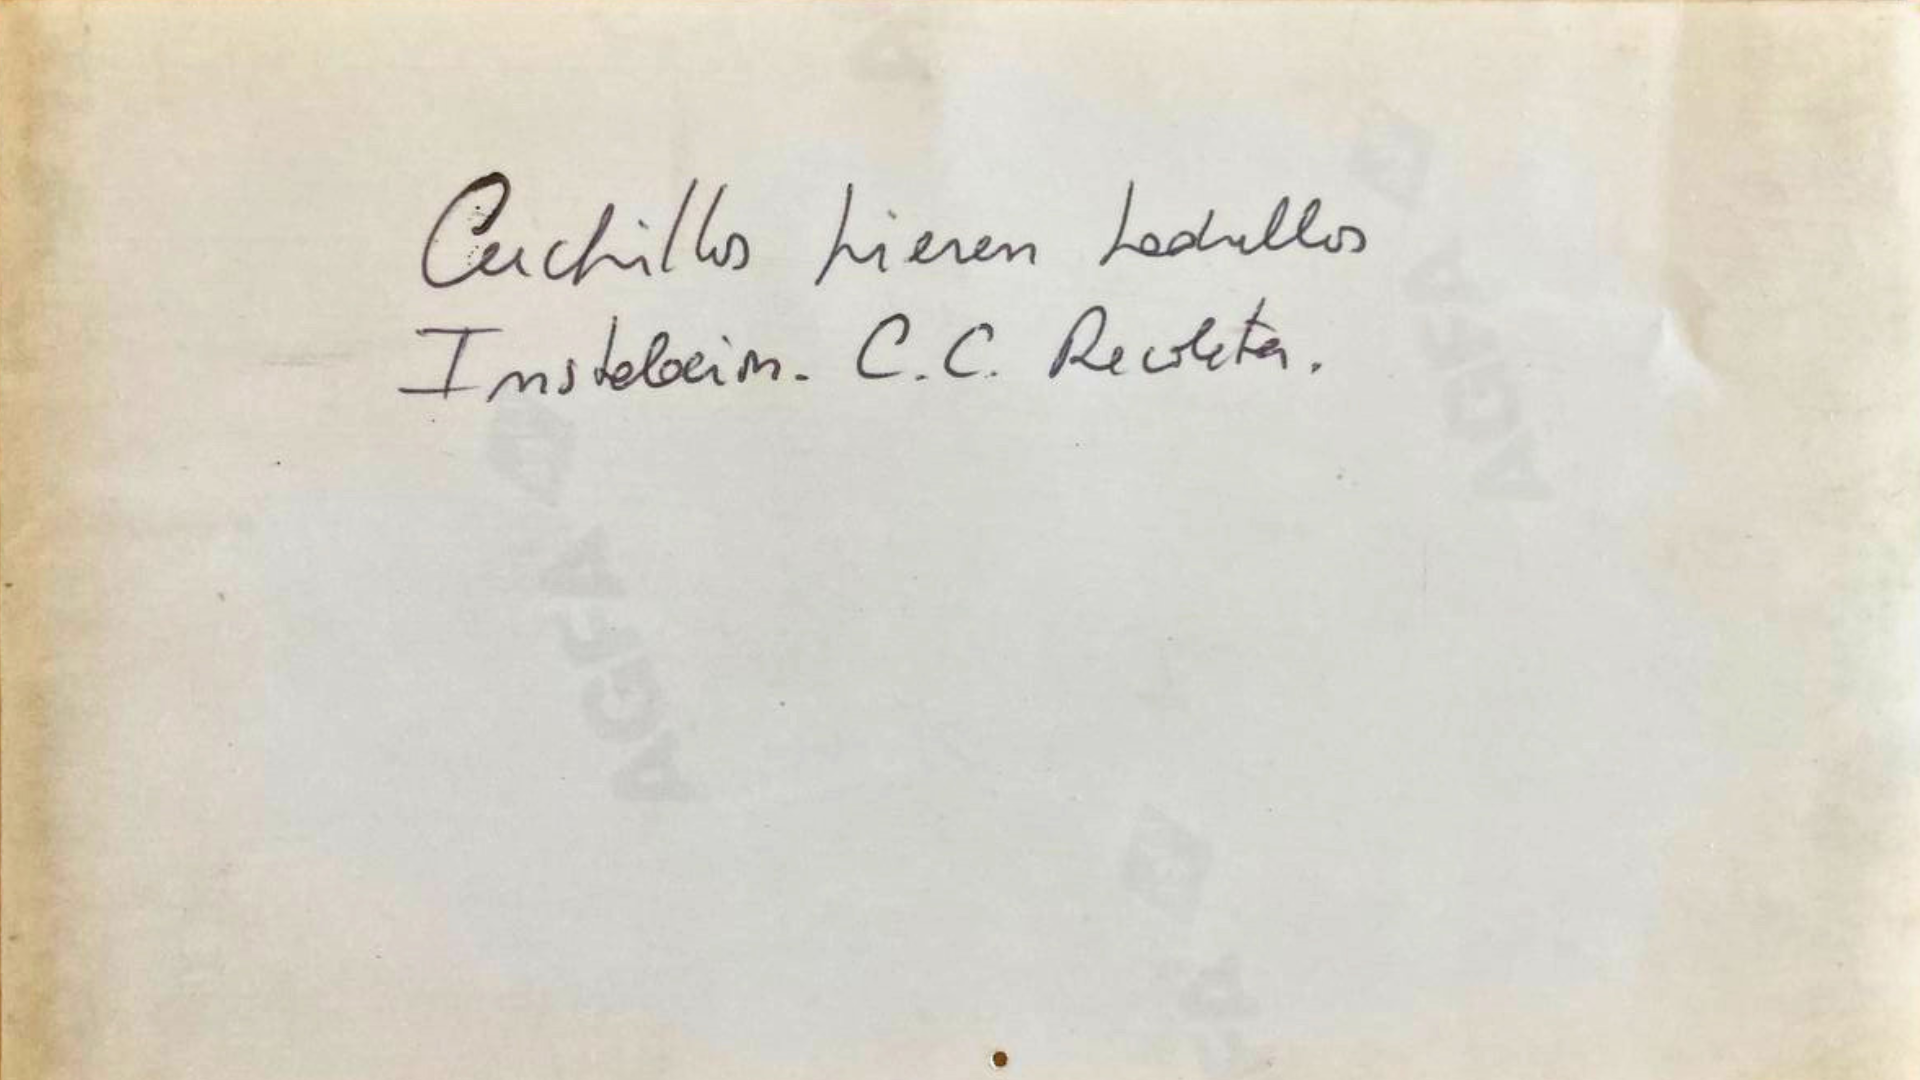 Cuchillos hieren Ladrillos
Instalación. C.C. Recoleta.
AGFA
AGFA